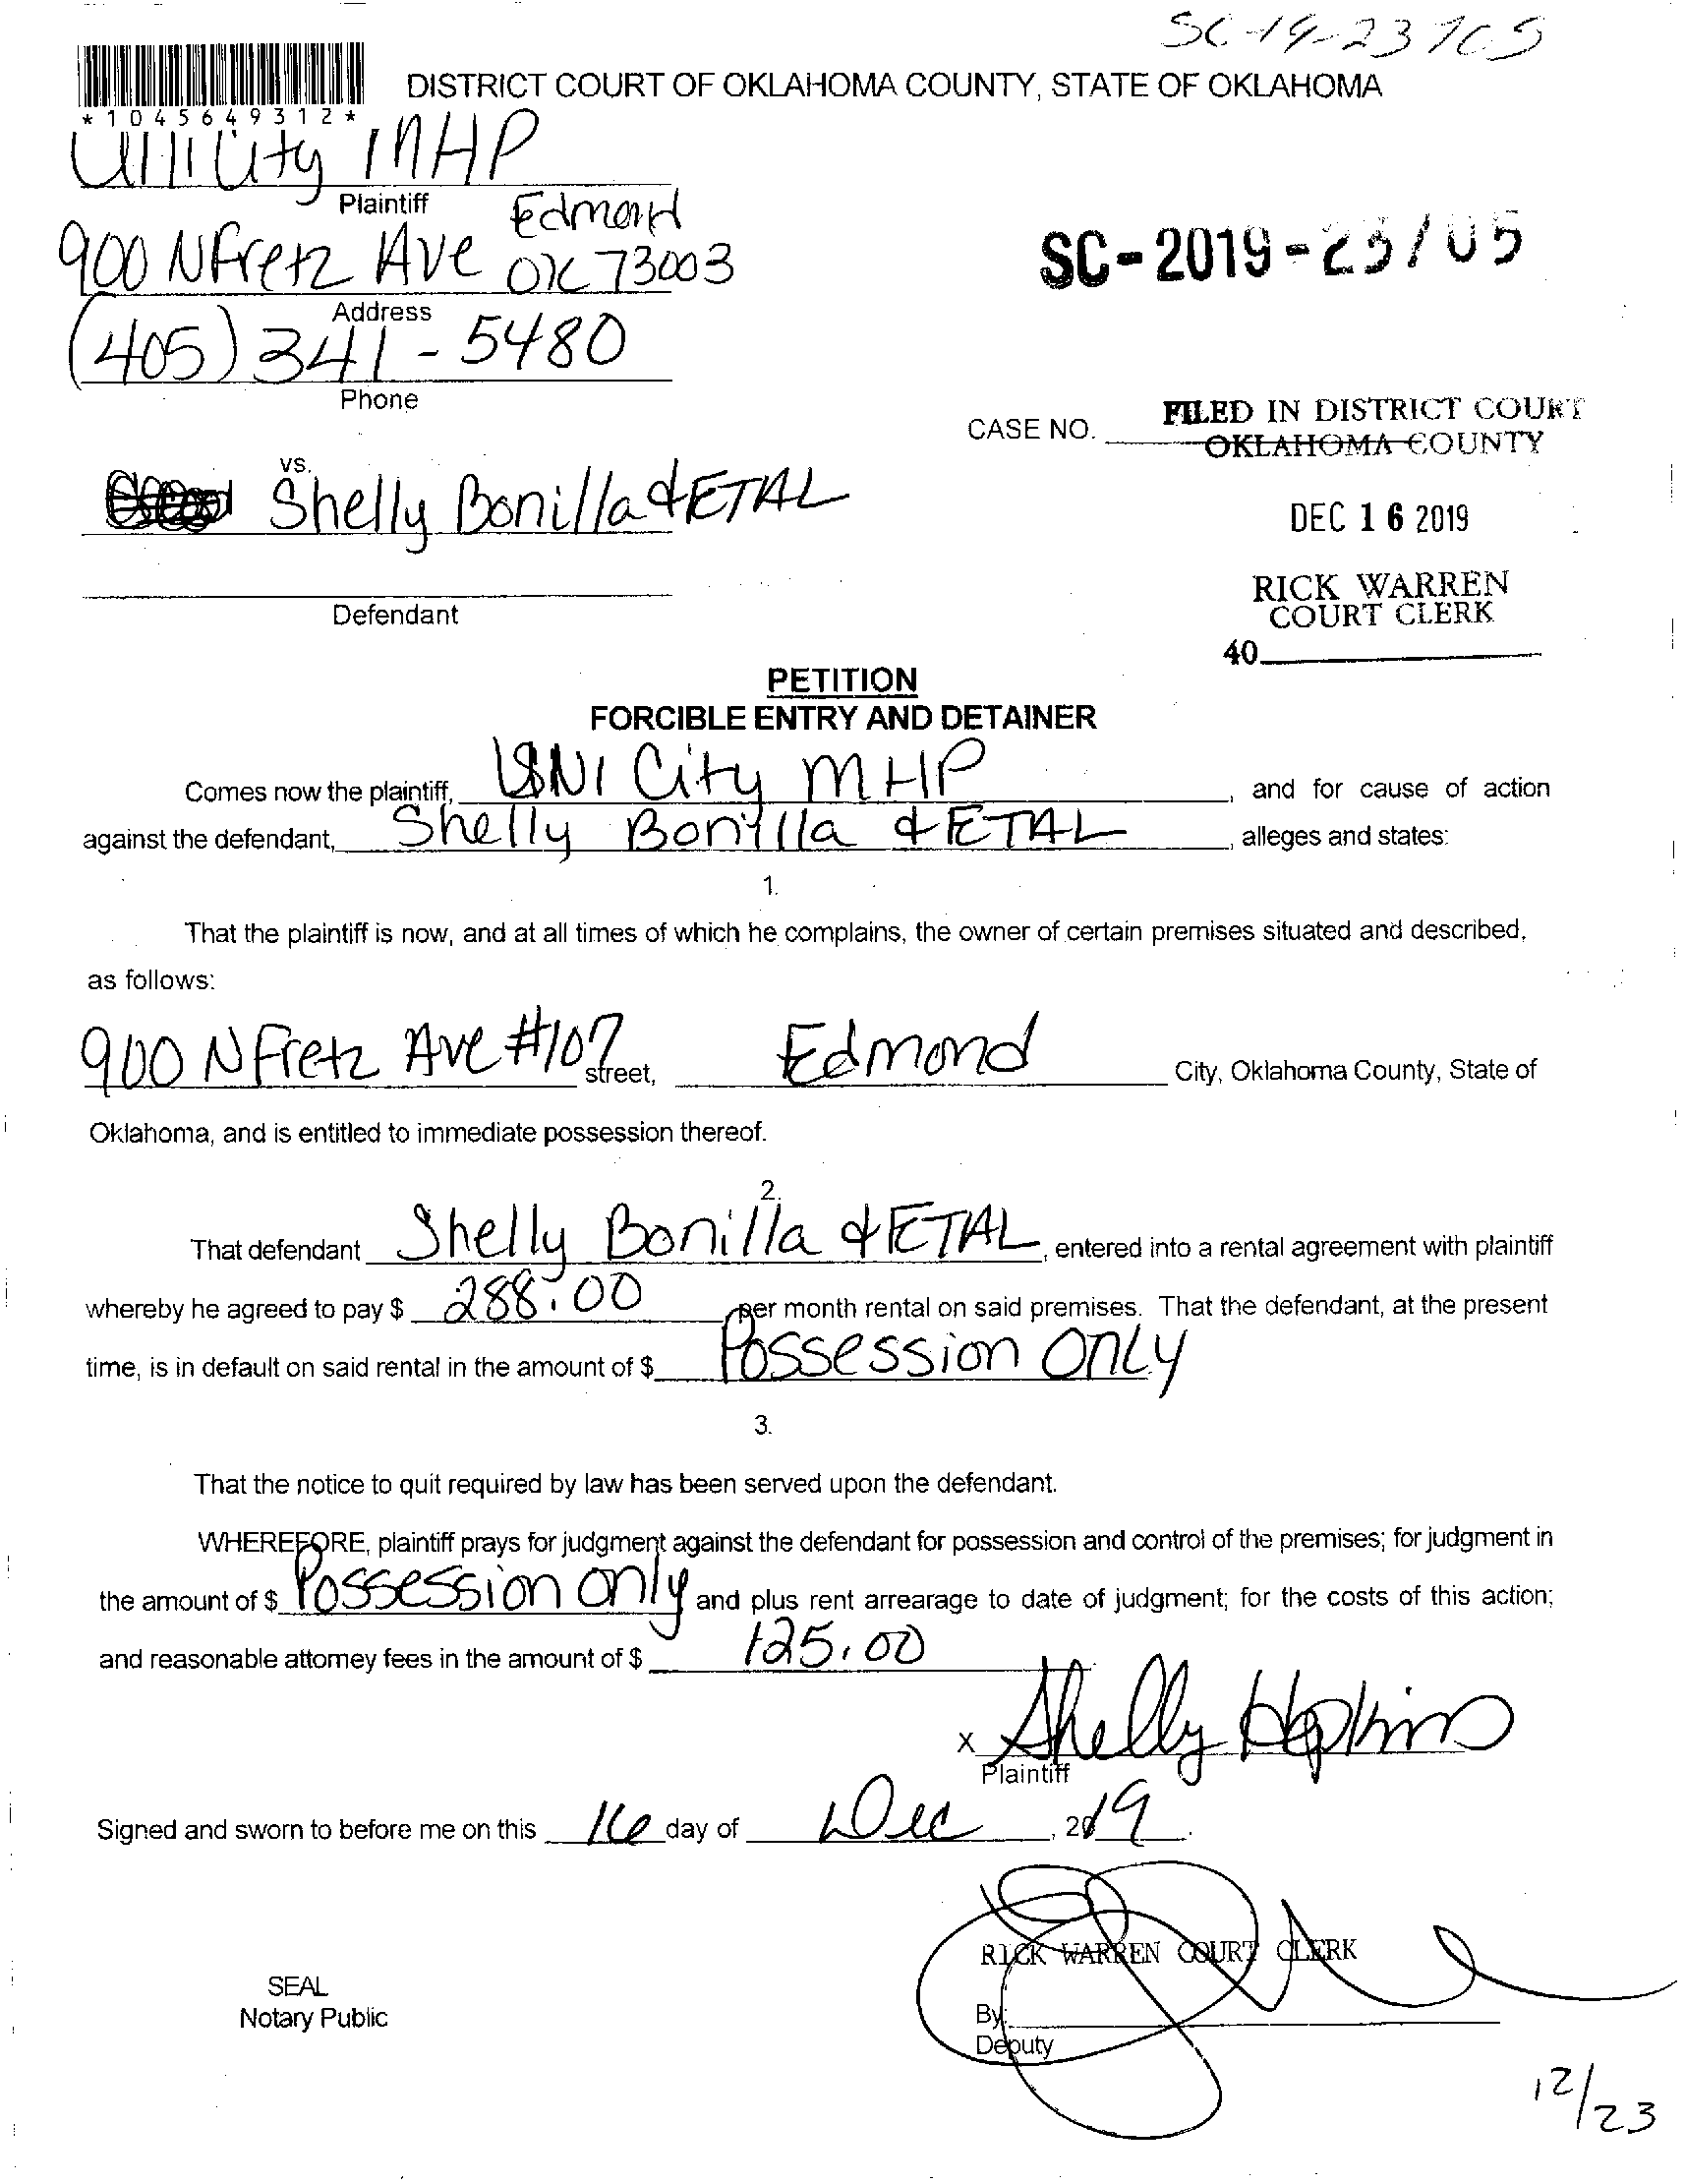 DISTRICT COURT OF OKLAHOMA COUNTY, STATE OF OKLAHOMA
*1045649312*
City MHP
Plaintiff
900 N Fretz Ave Edmond OK 73003
Address
SC-2019-
(405) 341-5480
Phone
CASE NO.
FILED IN DISTRICT COURT
OKLAHOMA COUNTY
vs.
Shelly Bonilla & ETAL
DEC 16 2019
Defendant
RICK WARREN
COURT CLERK
40
PETITION
FORCIBLE ENTRY AND DETAINER
Comes now the plaintiff, UNI City MHP, and for cause of action
against the defendant, Shelly Bonilla & ETAL, alleges and states:
1.
That the plaintiff is now, and at all times of which he complains, the owner of certain premises situated and described,
as follows:
900 N Fretz Ave #107 street, Edmond City, Oklahoma County, State of
Oklahoma, and is entitled to immediate possession thereof.
2.
That defendant Shelly Bonilla & ETAL, entered into a rental agreement with plaintiff
whereby he agreed to pay $ 288.00 per month rental on said premises. That the defendant, at the present
time, is in default on said rental in the amount of $ Possession ONLY
3.
That the notice to quit required by law has been served upon the defendant.
WHEREFORE, plaintiff prays for judgment against the defendant for possession and control of the premises; for judgment in
the amount of $ Possession only and plus rent arrearage to date of judgment; for the costs of this action;
and reasonable attorney fees in the amount of $ 125.00
x Shelly Hopkins
Plaintiff
Signed and sworn to before me on this 16 day of Dec, 2019.
RICK WARREN COURT CLERK
SEAL
Notary Public
By:
Deputy
12/23